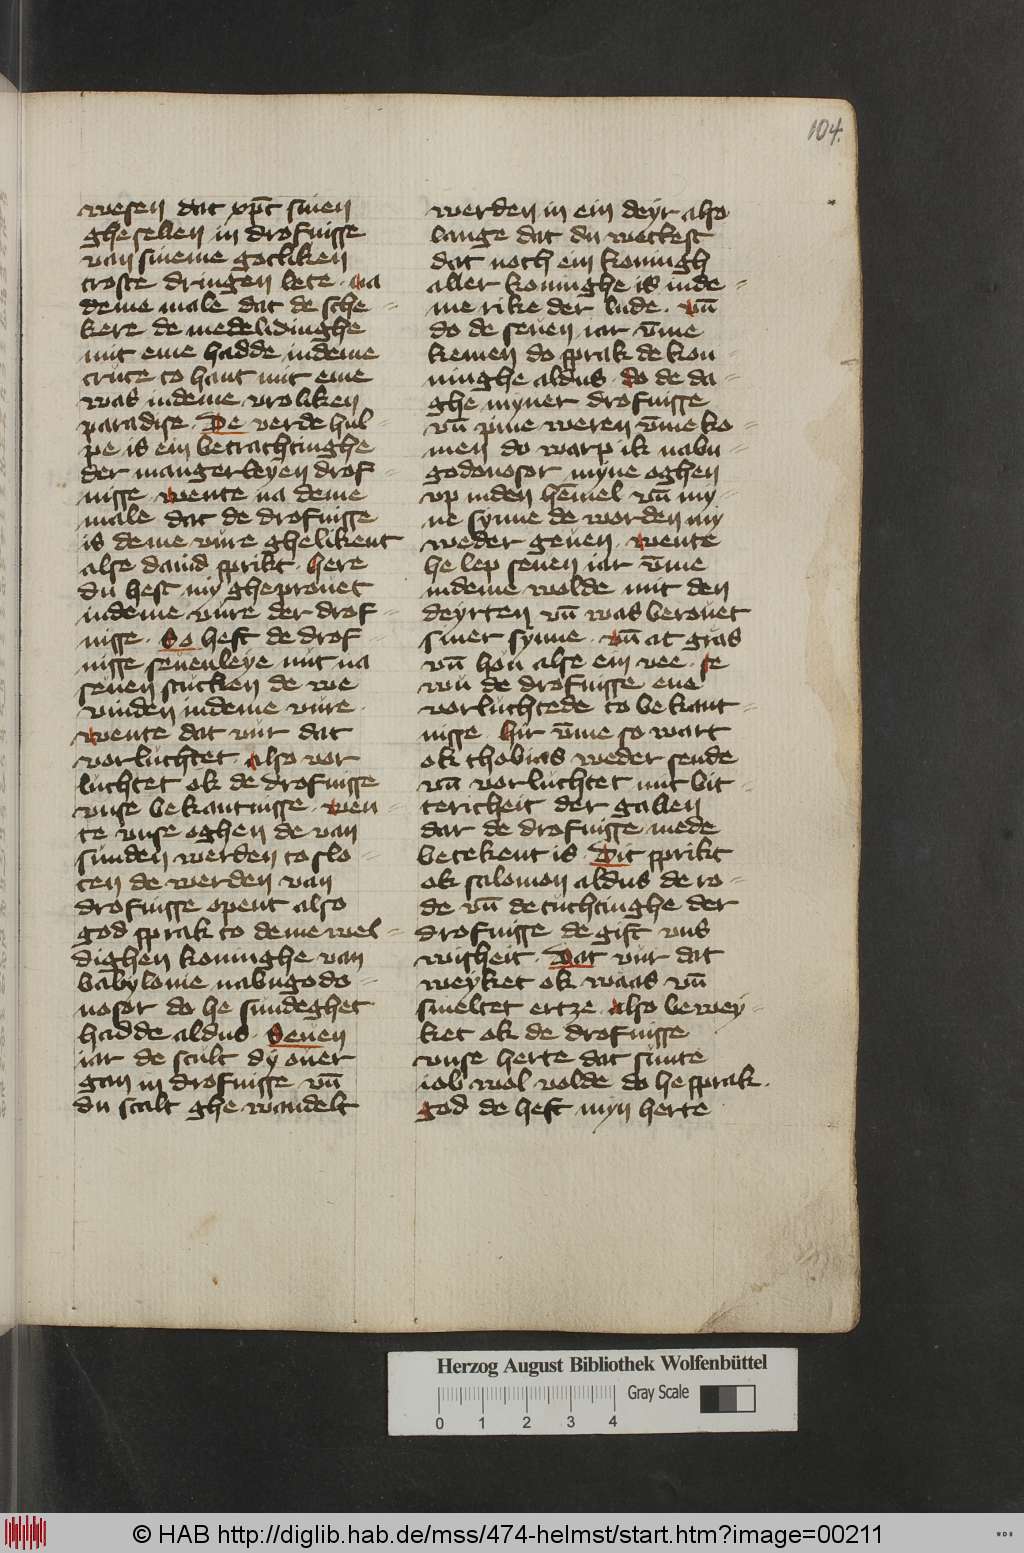 104.
wesen dat xp̄c sinen
ghesellen in drofnisse
van sineme gotliken
troste dringen lete. na
deme male dat de sche-
kere de medelidinghe
mit eme hadde indeme
cruce to hant mit eme
was indeme vroliken
paradise. De verde hul-
pe is ein betrachtinghe
der mangerleyen drof-
nisse. wente na deme
male dat de drofnisse
is deme vure ghelikent
alse dauid sprikt. here
du hest my ghepruuet
indeme vure der drof-
nisse. So heft de drof-
nisse seuenleye nut na
seuen stucken de we
vinden indeme vure.
wente dat vur dat
vorluchtet. also vor
luchtet ok de drofnisse
vnse bekantnisse. wen-
te vnse oghen de van
sunden werden toslo-
ten de werden van
drofnisse opent also
god sprak to deme wel-
dighen koninghe van
babylonie nabugodo-
nosor do he sundeghet
hadde aldus. Seuen
iar de scult dy ouer
gan in drofnisse vn̄
du scalt ghe wandelt
werden in ein deyr also
lange dat du weckest
dat noch ein koningh
aller koninghe is inde-
me rike der lude. vn̄
do de seuen iar v̄me
kemen do sprak de kon-
ninghe aldus. do de da-
ghe myner drofnisse
vn̄ pine weren v̄me ko-
men do warp ik nabu-
godonosor myne oghen
vp inden hēmel vn̄ my-
ne synne de worden my
weder geuen. wente
he lep seuen iar v̄me
indeme wolde mit den
deyrten vn̄ was berouet
siner synne. vn̄ at gras
vn̄ hou alse ein vee. se
wu de drofnisse ene
vorluchtede to bekant-
nisse. hir v̄me so wart
ok thobias weder sende
vn̄ vorluchtet mit bit-
tericheit der gallen
dar de drofnisse mede
betekent is. Dit sprikt
ok salomon aldus de ro-
de vn̄ de tuchtinghe der
drofnisse de gift vns
wisheit. Dat vur dat
weyket ok waas vn̄
smeltet ertze. also bewey-
ket ok de drofnisse
vnse herte dat sunte
iob wol volde do he sprak.
god de heft myn herte
Herzog August Bibliothek Wolfenbüttel
0 1 2 3 4
Gray Scale
© HAB http://diglib.hab.de/mss/474-helmst/start.htm?image=00211